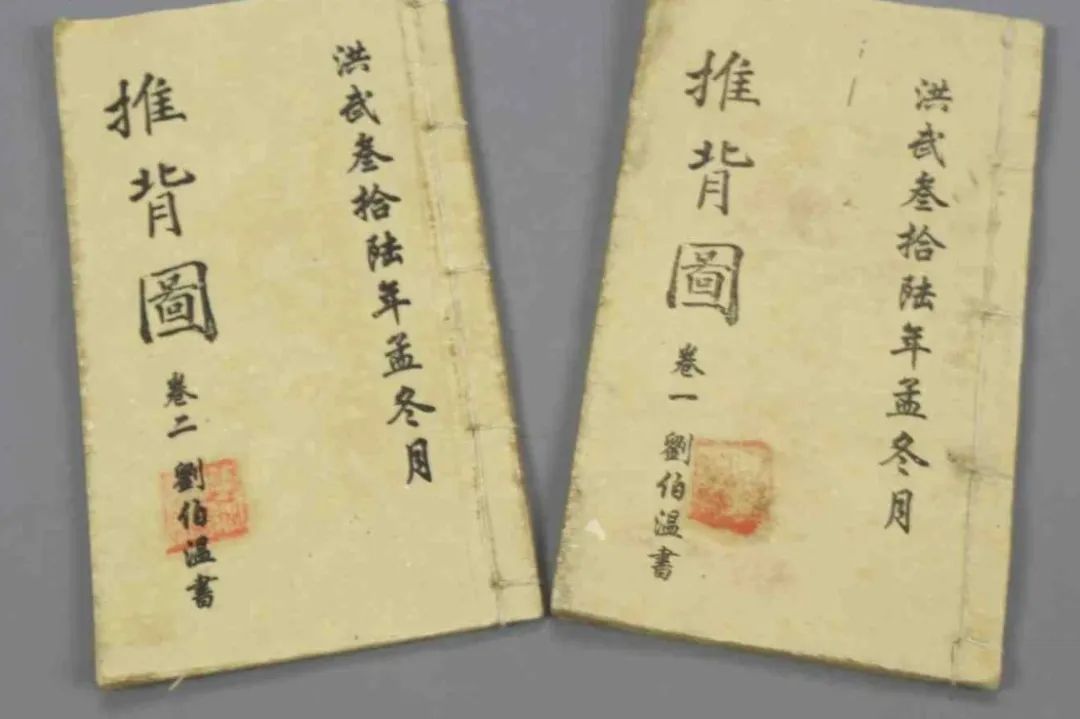 洪武叁拾陆年孟冬月
推背圖 卷二 劉伯温書
洪武叁拾陆年孟冬月
推背圖 卷一 劉伯温書